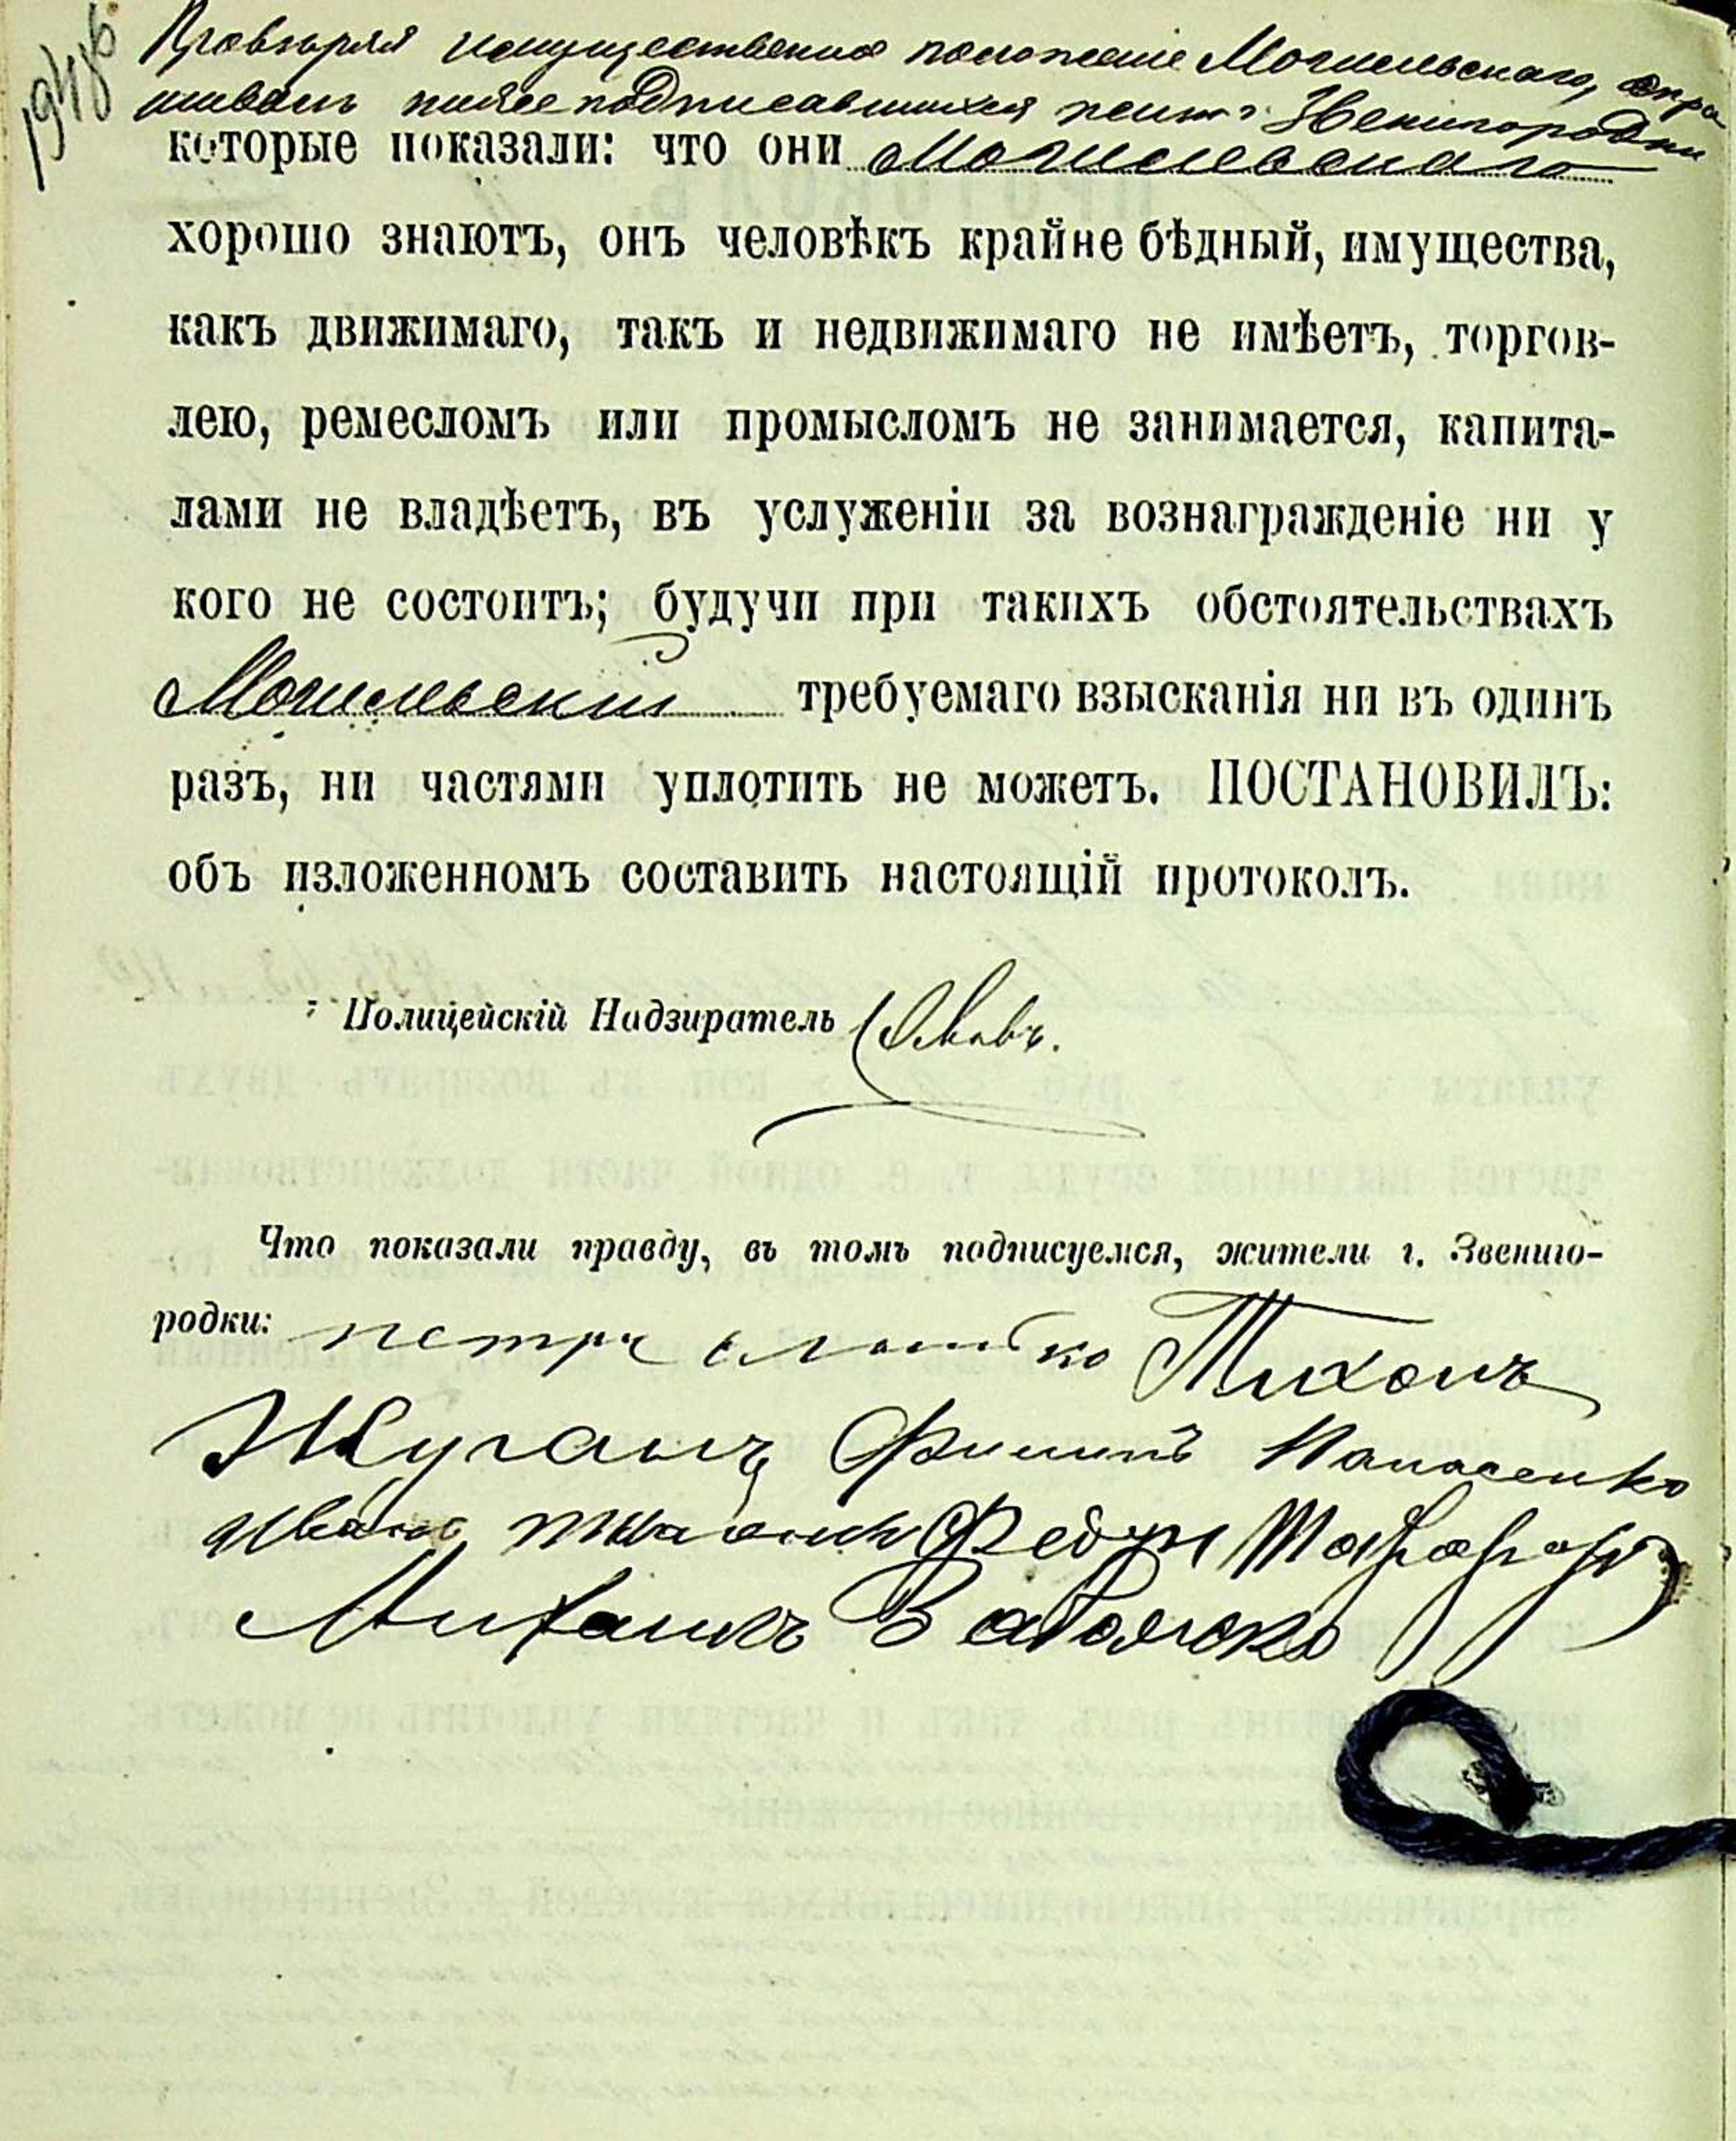 Провѣряя имущественное положеніе Могилевскаго, спра
шивалъ нижеподписавшихся жит. г. Звенигородки
которые показали: что они Могилевскаго
хорошо знаютъ, онъ человѣкъ крайне бѣдный, имущества,
какъ движимаго, такъ и недвижимаго не имѣетъ, торгов-
лею, ремесломъ или промысломъ не занимается, капита-
лами не владѣетъ, въ услуженіи за вознагражденіе ни у
кого не состоитъ; будучи при такихъ обстоятельствахъ
Могилевскій требуемаго взысканія ни въ одинъ
разъ, ни частями уплотить не можетъ. ПОСТАНОВИЛЪ:
объ изложенномъ составить настоящій протоколъ.
Полицейскій Надзиратель
Что показали правду, въ томъ подписуемся, жители г. Звениго-
родки: петръ Тихонъ
Жуганъ Филипъ Панасенко
Иванъ Федоръ
Михаилъ